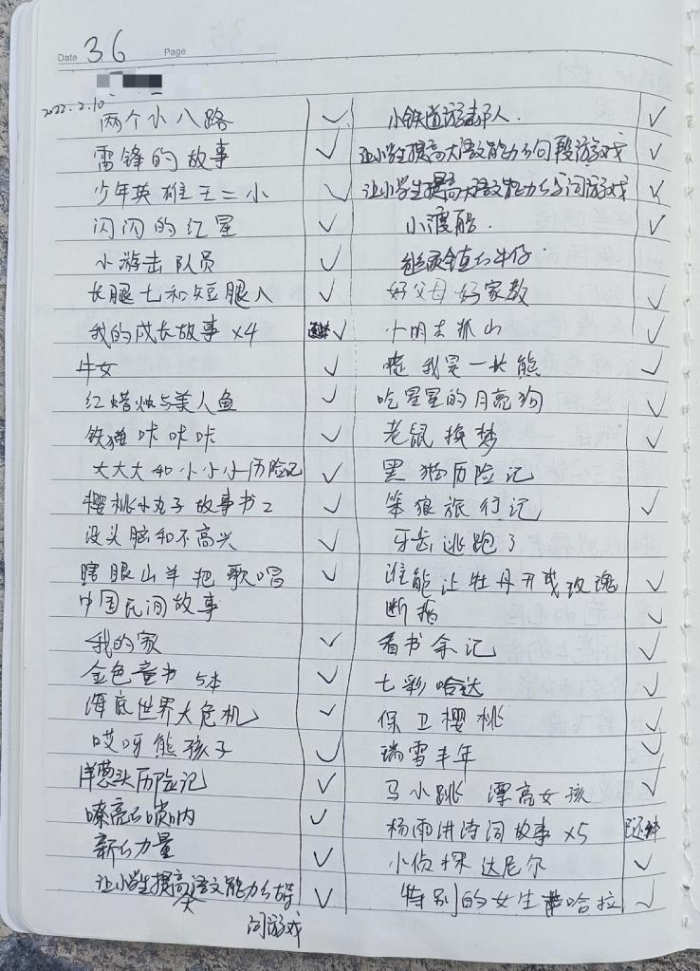 Date 36 Page
2022.2.10
两个小八路 ✓
雷锋的故事 ✓
少年英雄王二小 ✓
闪闪的红星 ✓
小游击队员 ✓
长腿七和短腿八 ✓
我的成长故事 ×4 ✓
牛女 ✓
红蜡烛与美人鱼 ✓
铁猫咔咔咔 ✓
大大大和小小小历险记 ✓
樱桃小丸子故事书2 ✓
没头脑和不高兴 ✓
瞎眼山羊把歌唱 ✓
中国民间故事
我的家 ✓
金色童书 5本 ✓
海底世界大危机 ✓
哎呀熊孩子 ✓
洋葱头历险记 ✓
嘹亮的唢呐 ✓
新的力量 ✓
让小学生提高语文能力的
词游戏 ✓
小铁道游击队 ✓
让小学生提高大语文能力的句段游戏 ✓
让小学生提高大语文能力的词游戏 ✓
小渡船 ✓
牛仔
好父母好家教 ✓
小明去孤山 ✓
嗨 我是一头熊 ✓
吃星星的月亮狗 ✓
老鼠换梦 ✓
黑猫历险记
笨狼旅行记 ✓
牙齿逃跑了
谁能让牡丹开成玫瑰 ✓
断指 ✓
看书杂记 ✓
七彩哈达 ✓
保卫樱桃 ✓
瑞雪丰年 ✓
马小跳 漂亮女孩 ✓
杨雨讲诗词故事 ×5
小侦探达尼尔 ✓
特别的女生萨哈拉 ✓